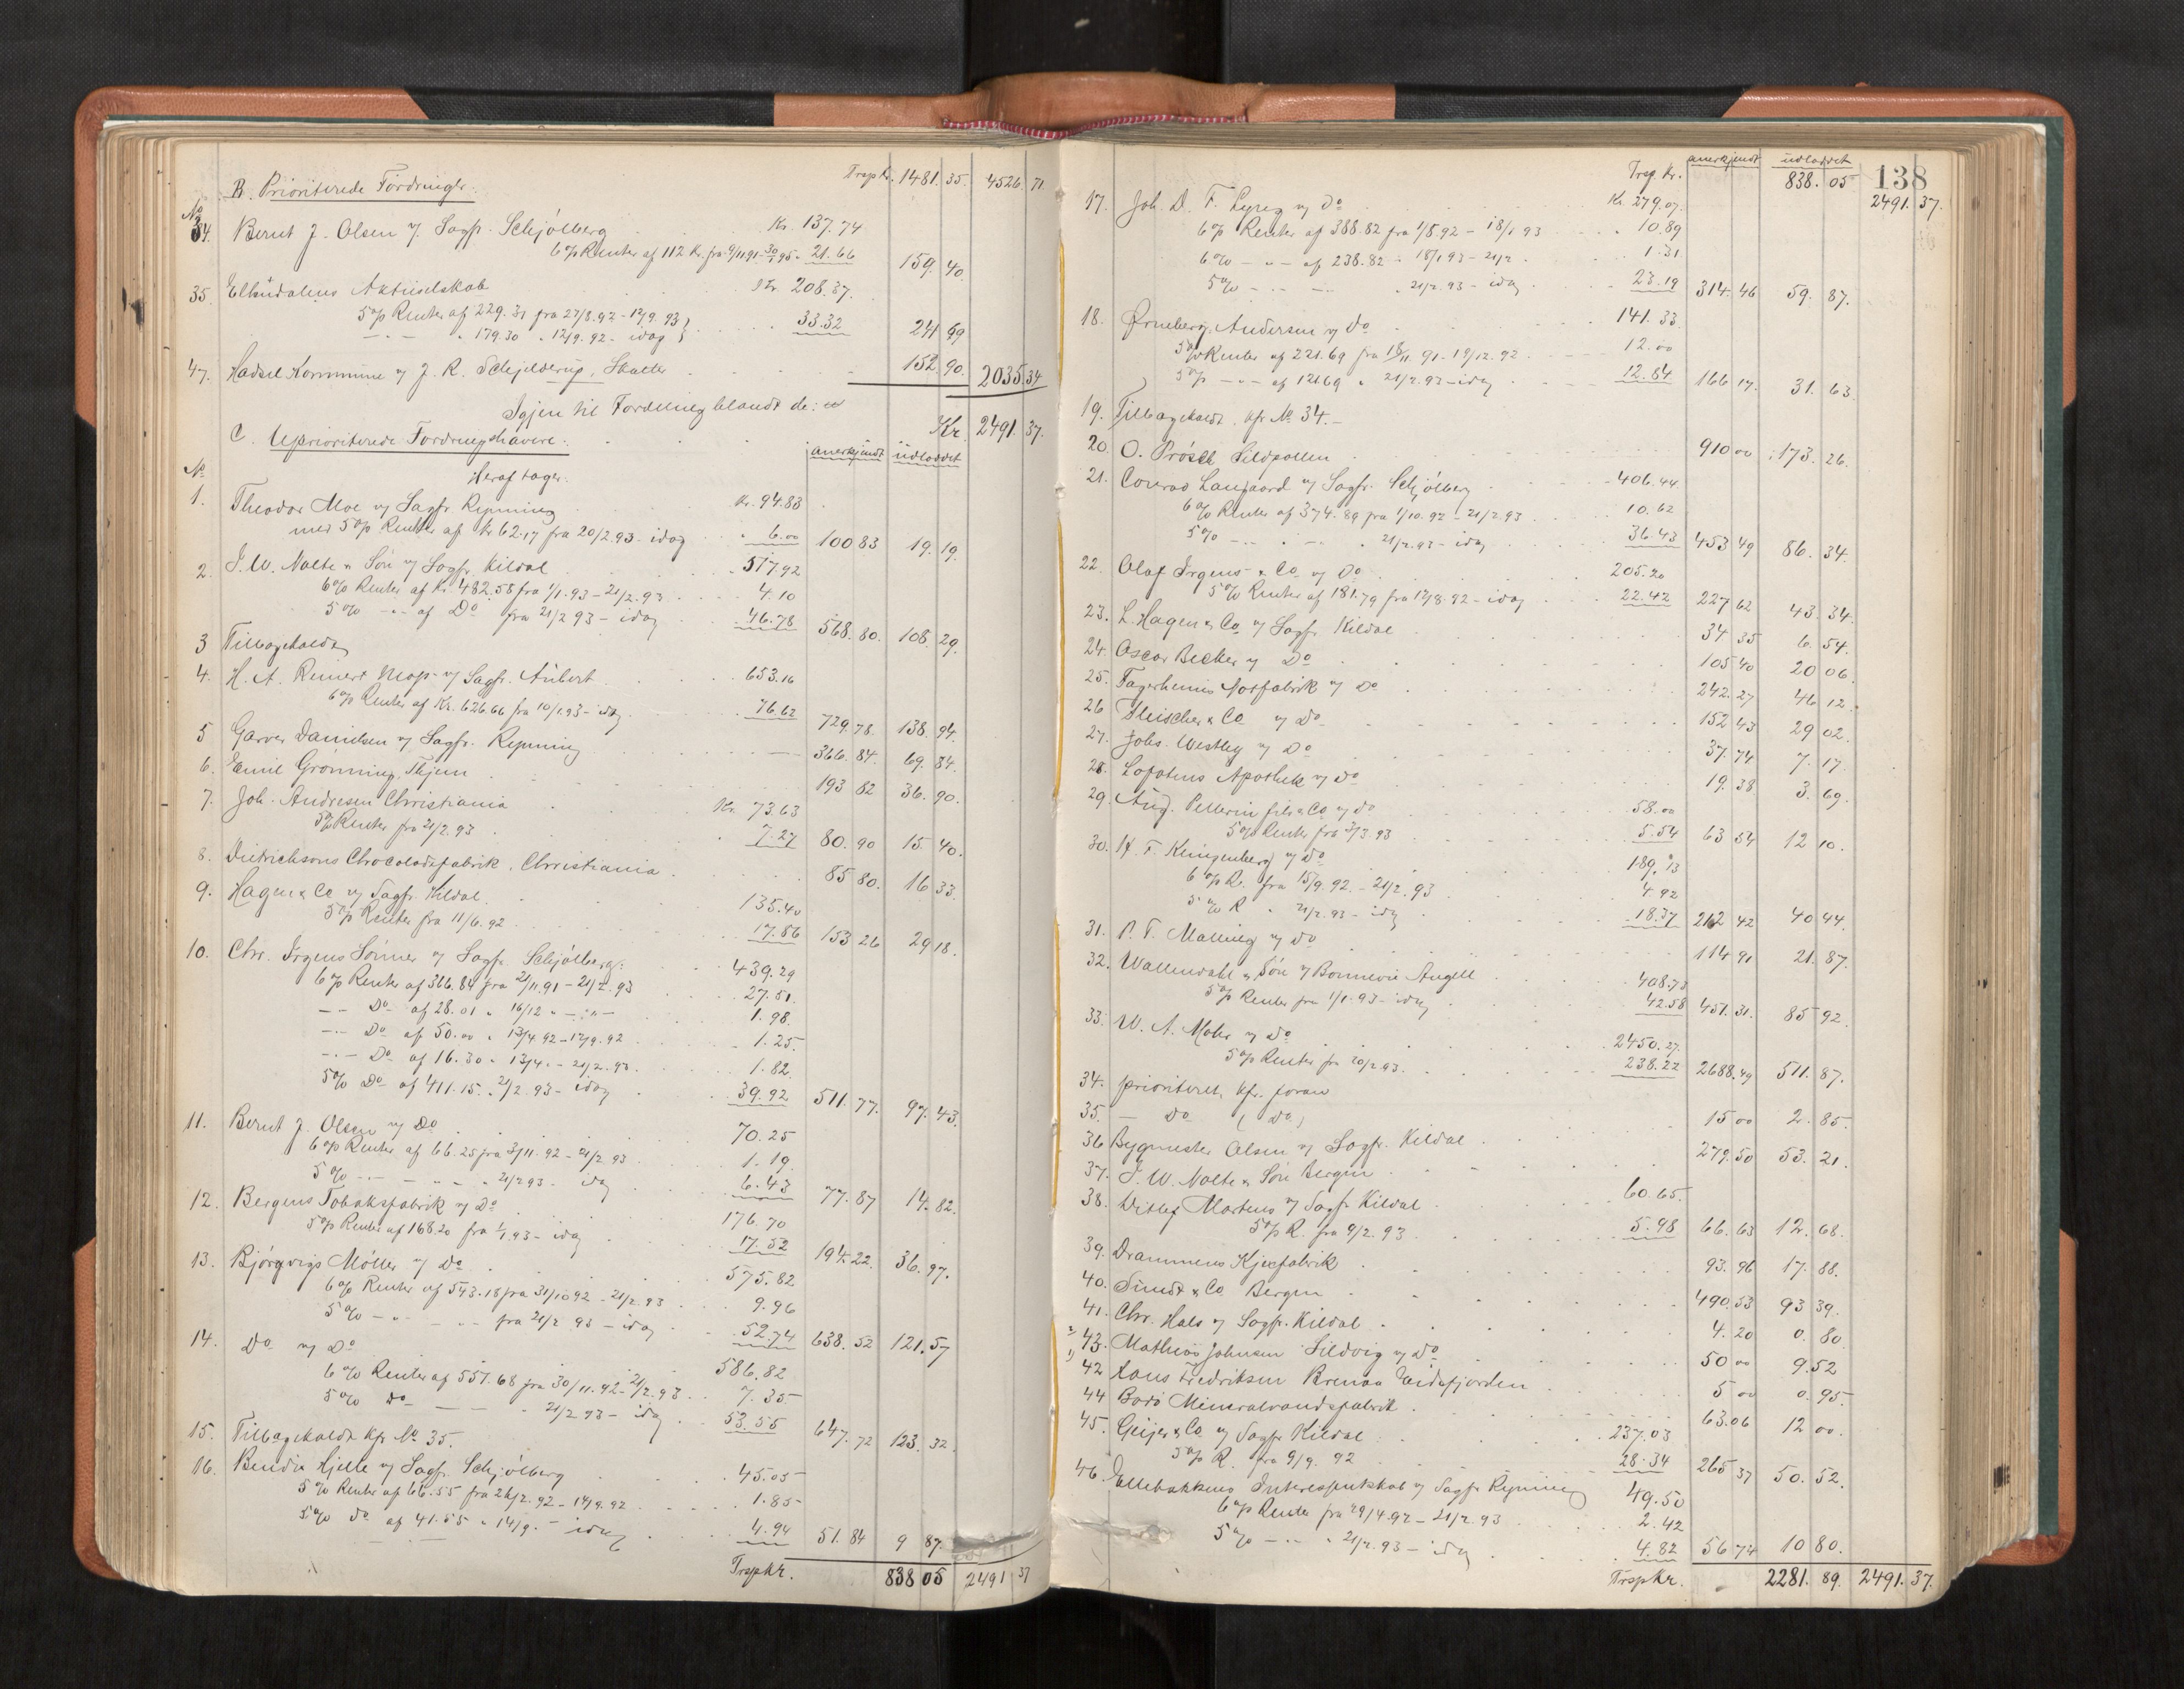 B. Prioriterede Fordringer. Trsp Kr. 1481. 35. 4526. 71.
No
34. Bernt J. Olsen v/ Sagf. Schjølberg Kr. 137.74
6 % Renter af 112 Kr. fra 9/11 91 - 30/1 95 " 21.66 159. 40
35. Elkuidalens Aktieselskab Kr. 208.37.
5 % Renter af 229.31 fra 27/8.92 - 12/9. 93
— " — " 179.30 " 12/9.92 - idag 33.32 241 69
47. Hadsel Kommune v/ J. R. Schjelderup, Skatter 152. 90. 2035 34
Igjen til Fordeling blandt de: Kr. 2491. 37.
C. Uprioriterede Fordringshavere: anerkjendt udloddet
No Heraf tager:
1. Theodor Moe v/ Sagf. Rynning Kr. 94.83
med 5 % Renter af Kr 62.17 fra 20/2.93 - idag " 6.00 100 83 19. 19.
2. J. W. Nolte & Søn v/ Sagf. Kildal 517.92
6 % Renter af Kr. 482.58 fra 1/1.93 - 21/2.93 4.10
5 % — " — af Do fra 21/2 93 - idag 46.78 568. 80. 108. 29.
3 Tilbagekaldt
4. H. A. Reinert Mop. v/ Sagf. Aubert 653.16
6 % Renter af Kr. 626.66 fra 10/1.93 - idag 76.62 729. 78. 138. 94.
5 Garver Danielsen v/ Sagf. Rynning 366. 84. 69. 84.
6. Emil Grønning, Thjem 193 82 36. 90.
7. Joh. Andresen Christiania Kr. 73.63
5 % Renter fra 21/2.93 7.27 80. 90 15 40.
8. Dietrichsons Chocoladefabrik, Christiania 85 80. 16 33.
9. Hagen & Co v/ Sagf. Kildal 135.40
5 % Renter fra 11/6.92 17.86 153 26 29 18.
10. Chr. Irgens Sønner v/ Sagf. Schjølberg: 439.29
6 % Renter af 366.84 fra 21/11.91 - 21/2.93 27.51.
— Do af 28.01 " 16/12 " — " — 1.98.
— " — Do af 50.00 " 13/4 92 - 12/9.92 1.25.
— " — Do af 16.30 " 13/4. " - 21/2.93 1.82.
5 % Do af 411.15. " 21/2 93 - idag 39.92 511. 77. 97. 43.
11. Bernt J. Olsen v/ Do 70.25
6 % Renter af 66.25 fra 3/11.92 - 21/2 93 1.19.
5 % — " — " 21/2 93 - idag 6.43 77. 87 14. 82.
12. Bergens Tobaksfabrik v/ Do 176.70
5 % Renter af 168.20 fra 1/1.93 - idag 17.52 194. 22. 36. 97.
13. Bjørgvigs Møller v/ Do 575.82
6 % Renter af 543.18 fra 31/10 92 - 21/2.93 9.96
5 % — " — fra 21/2 93 - idag 52.74 638. 52 121. 57
14. Do v/ Do 586.82
6 % Renter af 551.68 fra 30/11.92 - 21/2.93 7.35
5 % Do — " 21/2 93 - idag 53.55 647. 72 123. 32.
15. Tilbagekaldt kfr No 35.
16. Bendix Hjelle v/ Sagf. Schjølberg 45.05
5 % Renter af 66.55 fra 26/2.92 - 14/9.92 1.85
5 % Do af 41.55 " 14/9. " - idag 4.94 51. 84 9 87.
Trsp Kr. 838 05 2491 37
138
Trsp. Kr. anerkjendt udloddet 838. 05 2491. 37.
17. Joh. D. F. Lyreg v/ Do Kr. 279.07.
6 % Renter af 388.82 fra 1/8.92 - 18/1 93 " 10.89
6 % — " — af 238.82 " 18/1 93 - 21/2 1.31
5 % — " — " 21/2.93 - idag 23.19 314. 46 59. 87.
18. Ørneberg Andersen v/ Do 141.33
5 % Renter af 221.69 fra 18/11.91 - 19/12.92 12.00
5 % — " — af 121.69 " 21/2.93 - idag 12.84 166 17. 31. 63
19. Tilbagekaldt, kfr No 34.
20. O. Prøsch Sildpollen 910 00 173. 26.
21. Conrad Langaard v/ Sagf. Schjølberg 406.44
6 % Renter af 374.89 fra 1/10.92 - 21/2.93 10.62
5 % — " — " 21/2.93 - idag 36.43 453 49 86. 34.
22. Olaf Irgens & Co v/ Do 205.20
5 % Renter af 181.79 fra 12/8.92 - idag 22.42 227 62 43. 34.
23. L. Hagen & Co v/ Sagf. Kildal 34 35 6. 54.
24. Oscar Becker v/ Do 105 40 20 06.
25. Fagerheims Notfabrik v/ Do 242. 27 46 12.
26 Fleischer & Co v/ Do 152 43 29 02.
27. Johs. Westby v/ Do 37. 74 7. 17.
28. Lofotens Apothek v/ Do 19. 38 3. 69.
29. Aug. Pellerin fils & Co v/ Do 58.00
5 % Renter fra 3/3 93 5.54 63 54 12 10.
30. H. F. Klingenberg v/ Do 189.13
6 % R. fra 15/9.92 - 21/2.93 4.92
5 % R " 21/2.93 - idag 18.37 212 42 40 44.
31. P. T. Malling v/ Do 114 91 21. 87.
32. Wallendahl & Søn v/ Bonnevie Angell 408.73
5 % Renter fra 1/1.93 - idag 42.58 451. 31. 85 92.
33. W. A. Mohr v/ Do 2450.27.
5 % Renter fra 20/2 93. 238.22 2688. 49 511. 87.
34. prioriteret, kfr. foran
35. — Do (Do)
36 Bygmester Olsen v/ Sagf. Kildal 15 00 2. 85.
37. J. W. Nolte & Søn Bergen 279. 50 53. 21.
38. Ditlef Martens v/ Sagf. Kildal 60.65.
5 % R. fra 9/2.93 5.98 66. 63 12. 68.
39. Drammens Kjexfabrik 93. 96 17. 88.
40. Sundt & Co Bergen 490. 53 93 39.
41. Chr. Hals v/ Sagf. Kildal 4. 20 0. 80
2) 43. Mathias Johnsen Sildvig v/ Do 50 00 9. 52
1) 42 Hans Fredriksen Brenna Eidsfjorden 5 00 0. 95.
44 Bodø Mineralvandsfabrik 63. 06 12 00.
45. Geijer & Co v/ Sagf. Kildal 237.03
5 % R. fra 9/9.92 28.34 265 37 50. 52.
46. Ellebakkens Interessentskab v/ Sagf. Rynning 49.50
6 % Renter fra 29/4.92 - 21/2.93 2.42
5 % — " — " 21/2.93 - idag 4.82 56 74 10 80.
Trsp Kr. 2281. 89. 2491. 37.